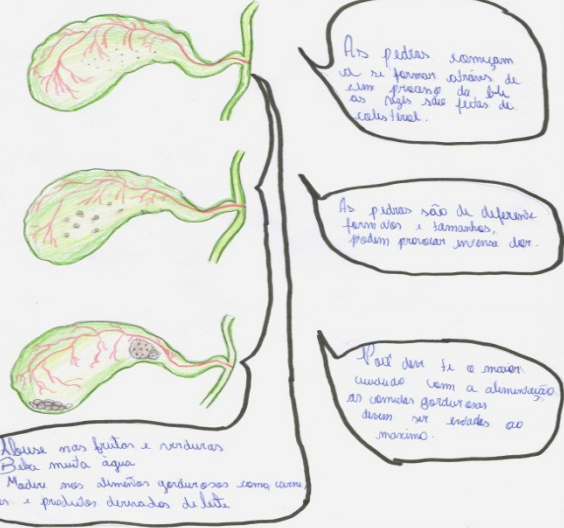 As pedras começam
a se formar atráves de
um processo da bile
as vezes são feitas de
colesterol.
As pedras são de diferente
formatos e tamanhos,
podem provocar intensa dor.
Você deve te o maior
cuidado com a alimentação
as comidas gordurosas
devem ser evitadas ao
maximo.
Abuse nas frutas e verduras
Beba muita àgua
Modere nos alimentos gordurosos como carne
e produtos derivados de leite